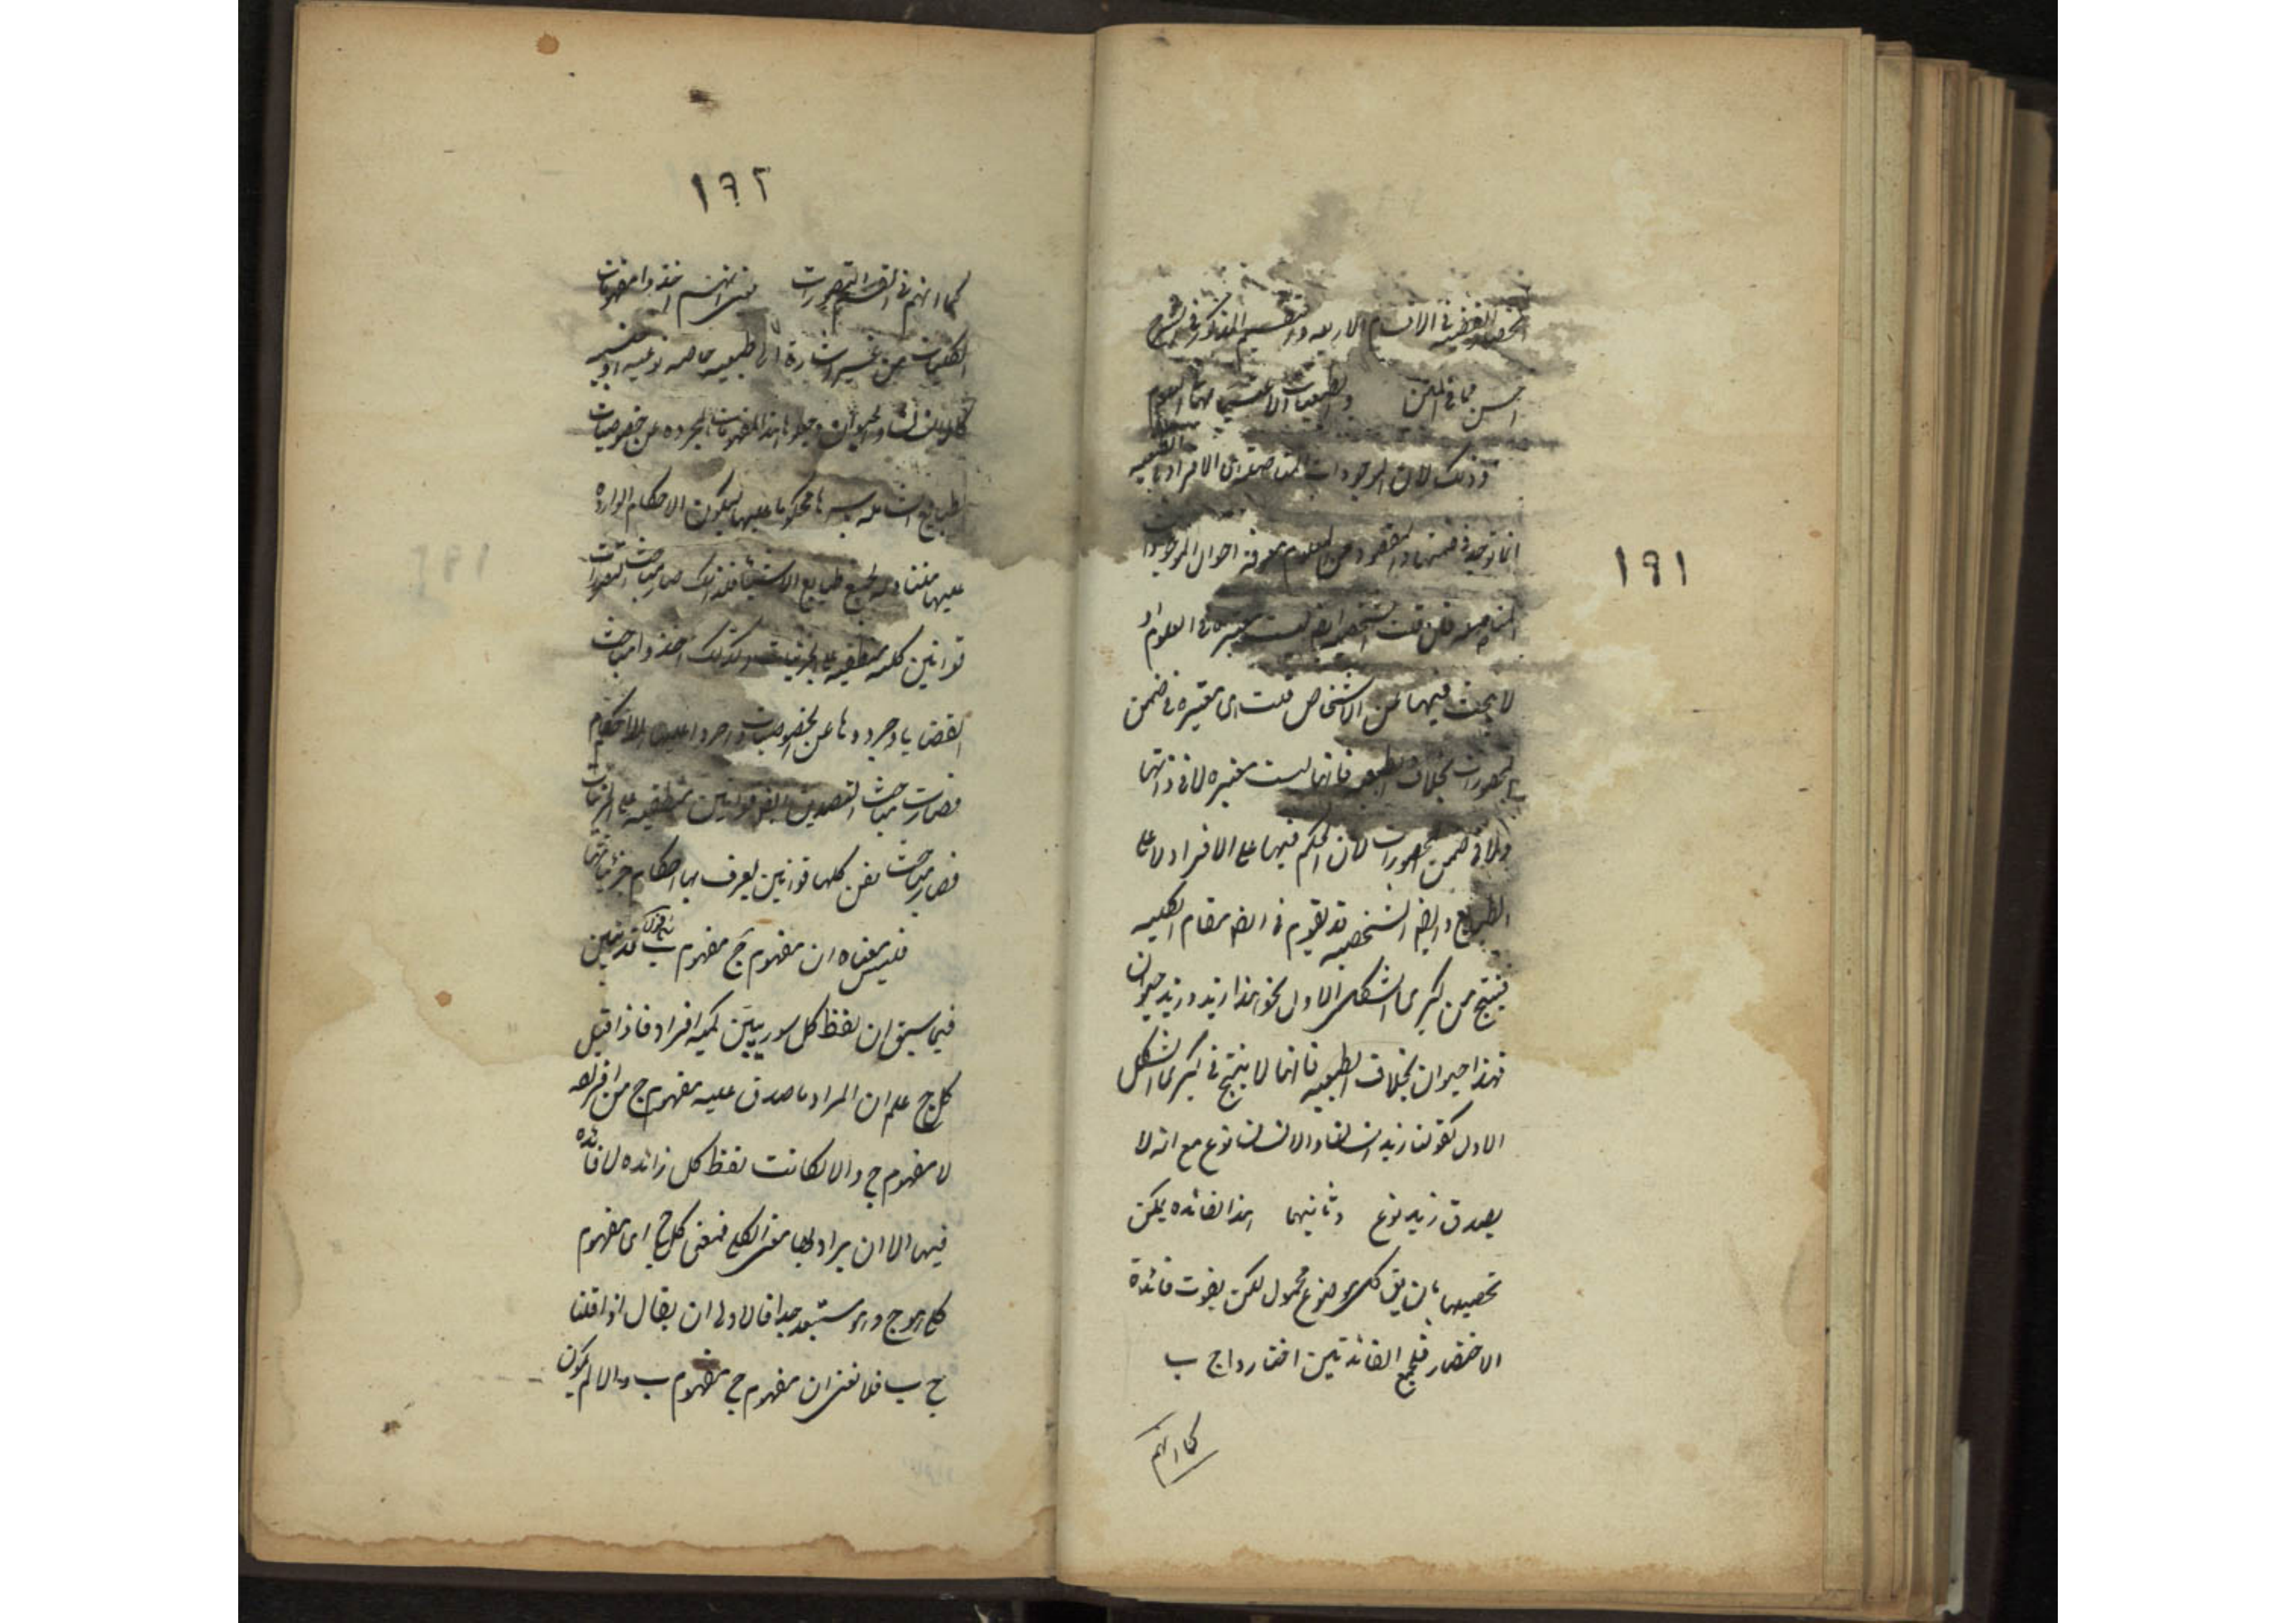 ١٩١
انحصار القضيه في الاقسام الاربعه والتقسيم المذكور في الشرح
احسن مما في المتن والطبيعيات لا تعتبر في العلوم
وذلك لان الموجودات المتاصله هي الافراد والطبيعيه
انما توجد في ضمنها والمقصود من العلوم معرفة احوال الموجودات
المتاصله فان قلت الشخصيه ايضا ليست معتبره في العلوم اذ
لا يبحث فيها عن الاشخاص قلت هي معتبره في ضمن
المحصورات بخلاف الطبيعيه فانها ليست معتبره لا في ذاتها
ولا في ضمن المحصورات لان الحكم فيها على الافراد لا على
الطبايع وايضا الشخصيه قد تقوم في مقام الكليه
فينتج من كبرى الشكل الاول نحو هذا زيد وزيد حيوان
فهذا حيوان بخلاف الطبيعيه فانها لا ينتج في كبرى الشكل
الاول كقولنا زيد انسان والانسان نوع مع انه لا
يصدق زيد نوع وثانيهما هذا الفائده يمكن
تحصيلها بان يق كل موضوع محمول لكن يفوت فائدة
الاختصار فلجمع الفائدتين اختاروا ج ب
كما انهم
١٩٢
كما انهم في القسم التصورات اخذوا مفهومات
الكليات من غير اشارة الى طبيعيه خاصه نوعيه او جنسيه
كالانسان والحيوان وجعلوا هذا المفهومات المجرده عن خصوصيات
الطبايع الشامله باسرها محكوما عليها ليكون الاحكام الوارده
عليها متناوله لجميع طبايع الاشيا فلذلك صار مباحث التصورات
قوانين كليه منطبقه على الجزئيات وكذلك اخذوا مباحث
القضايا وجردوها عن الخصوصيات واجروا عليها الاحكام
فصارت مباحث التصديق ايضا قوانين منطبقيه على الجزئيات
فصار مباحث الفن كلها قوانين يعرف بها احكام جزئياتها
فليس معناه ان مفهوم ج مفهوم ب قد تبين
فيما سبق ان لفظ كل سور يبين كميه افراد فاذا قيل
كل ج علم ان المراد ما صدق عليه مفهوم ج من افراده
لا مفهوم ج والا لكانت لفظ كل زائده لا فائده
فيها الا ان يراد بها معنى الكلي فمعنى كل ج اي مفهوم
كلي هو ج وهو مستبعد جدا فالاولى ان يقال اذا قلنا
ج ب فلا نعنى ان مفهوم ج مفهوم ب والا لم يكون